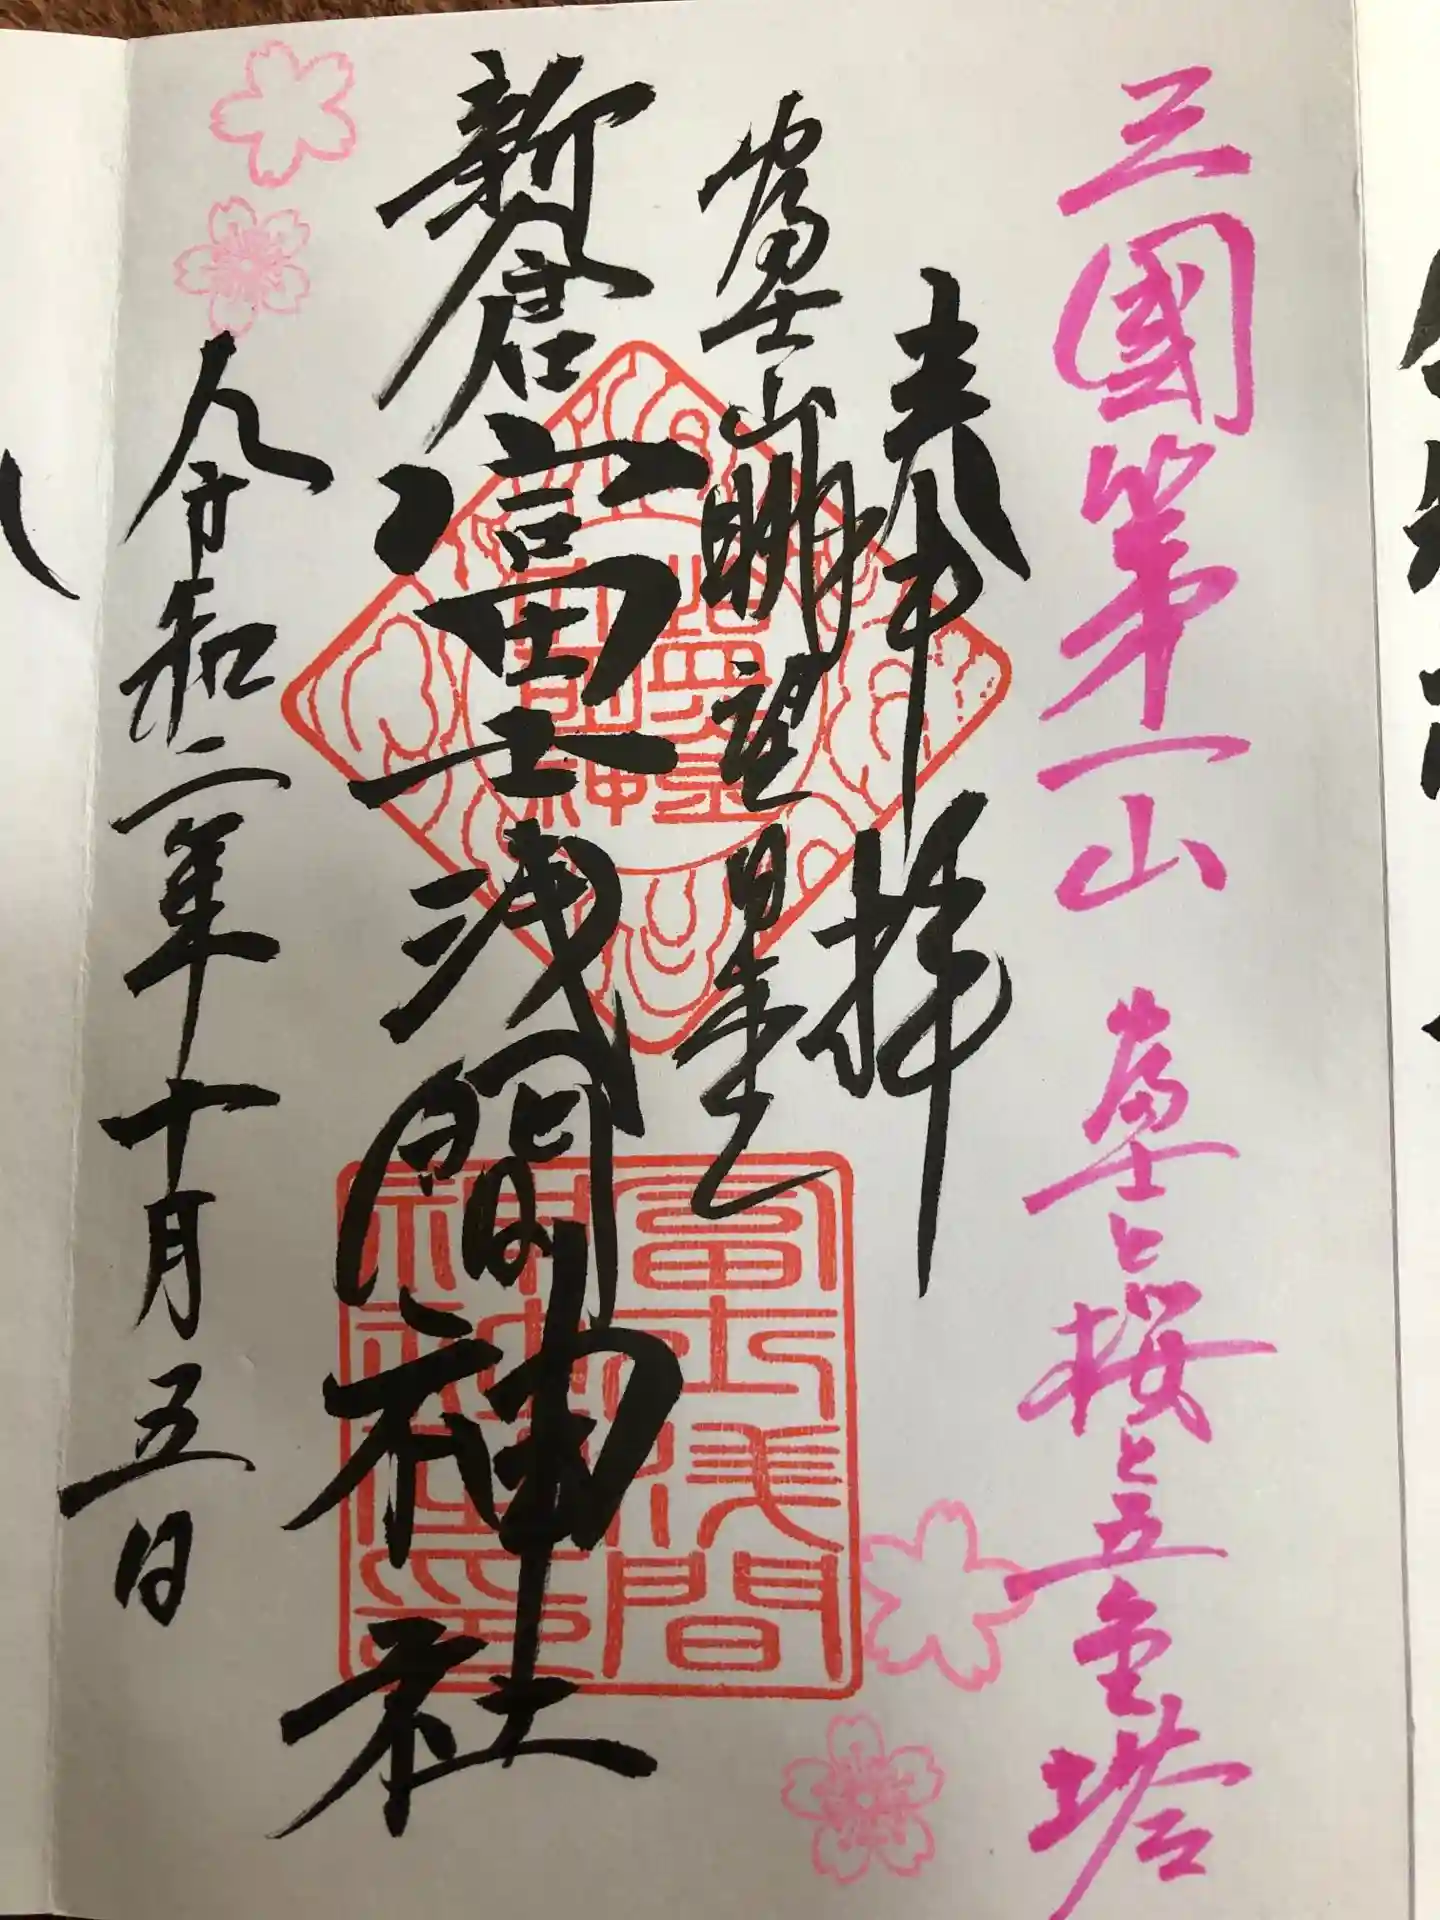 三國第一山 富士と桜と五重塔
奉拝
富士山眺望星
新倉富士浅間神社
令和二年十月五日
富士浅間
神社